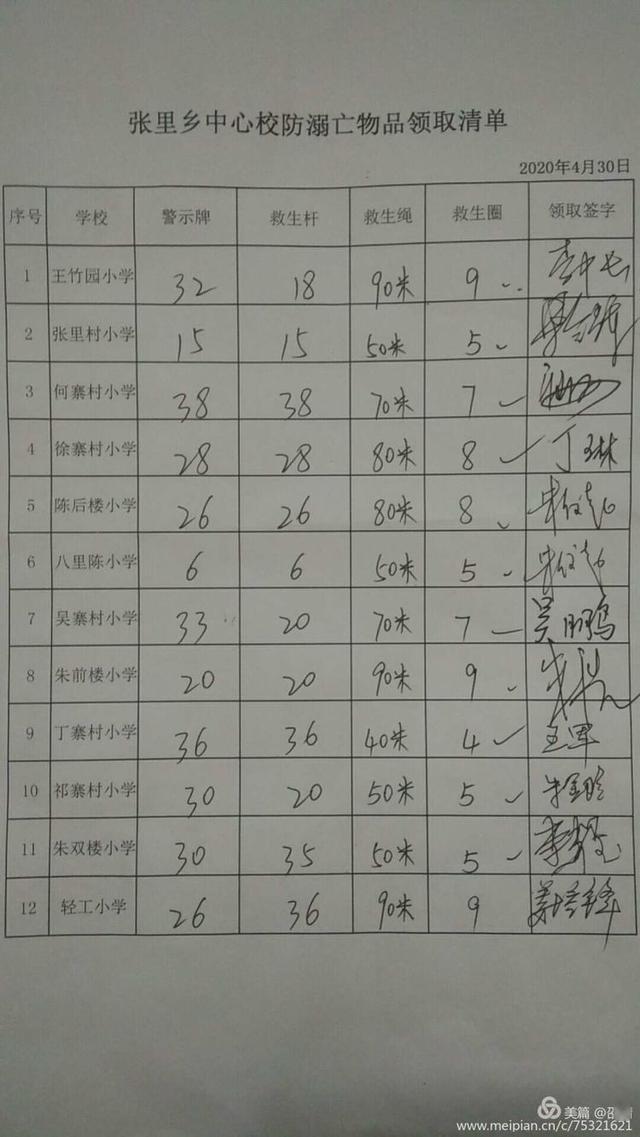 张里乡中心校防溺亡物品领取清单
2020年4月30日
序号 学校 警示牌 救生杆 救生绳 救生圈 领取签字
1 王竹园小学 32 18 90米 9
2 张里村小学 15 15 50米 5
3 何寨村小学 38 38 70米 7
4 徐寨村小学 28 28 80米 8 丁玉林
5 陈后楼小学 26 26 80米 8
6 八里陈小学 6 6 50米 5
7 吴寨村小学 33 20 70米 7 吴鹏
8 朱前楼小学 20 20 90米 9
9 丁寨村小学 36 36 40米 4 王军
10 祁寨村小学 30 20 50米 5
11 朱双楼小学 30 35 50米 5
12 轻工小学 26 36 90米 9
美篇 @
www.meipian.cn/c/75321621